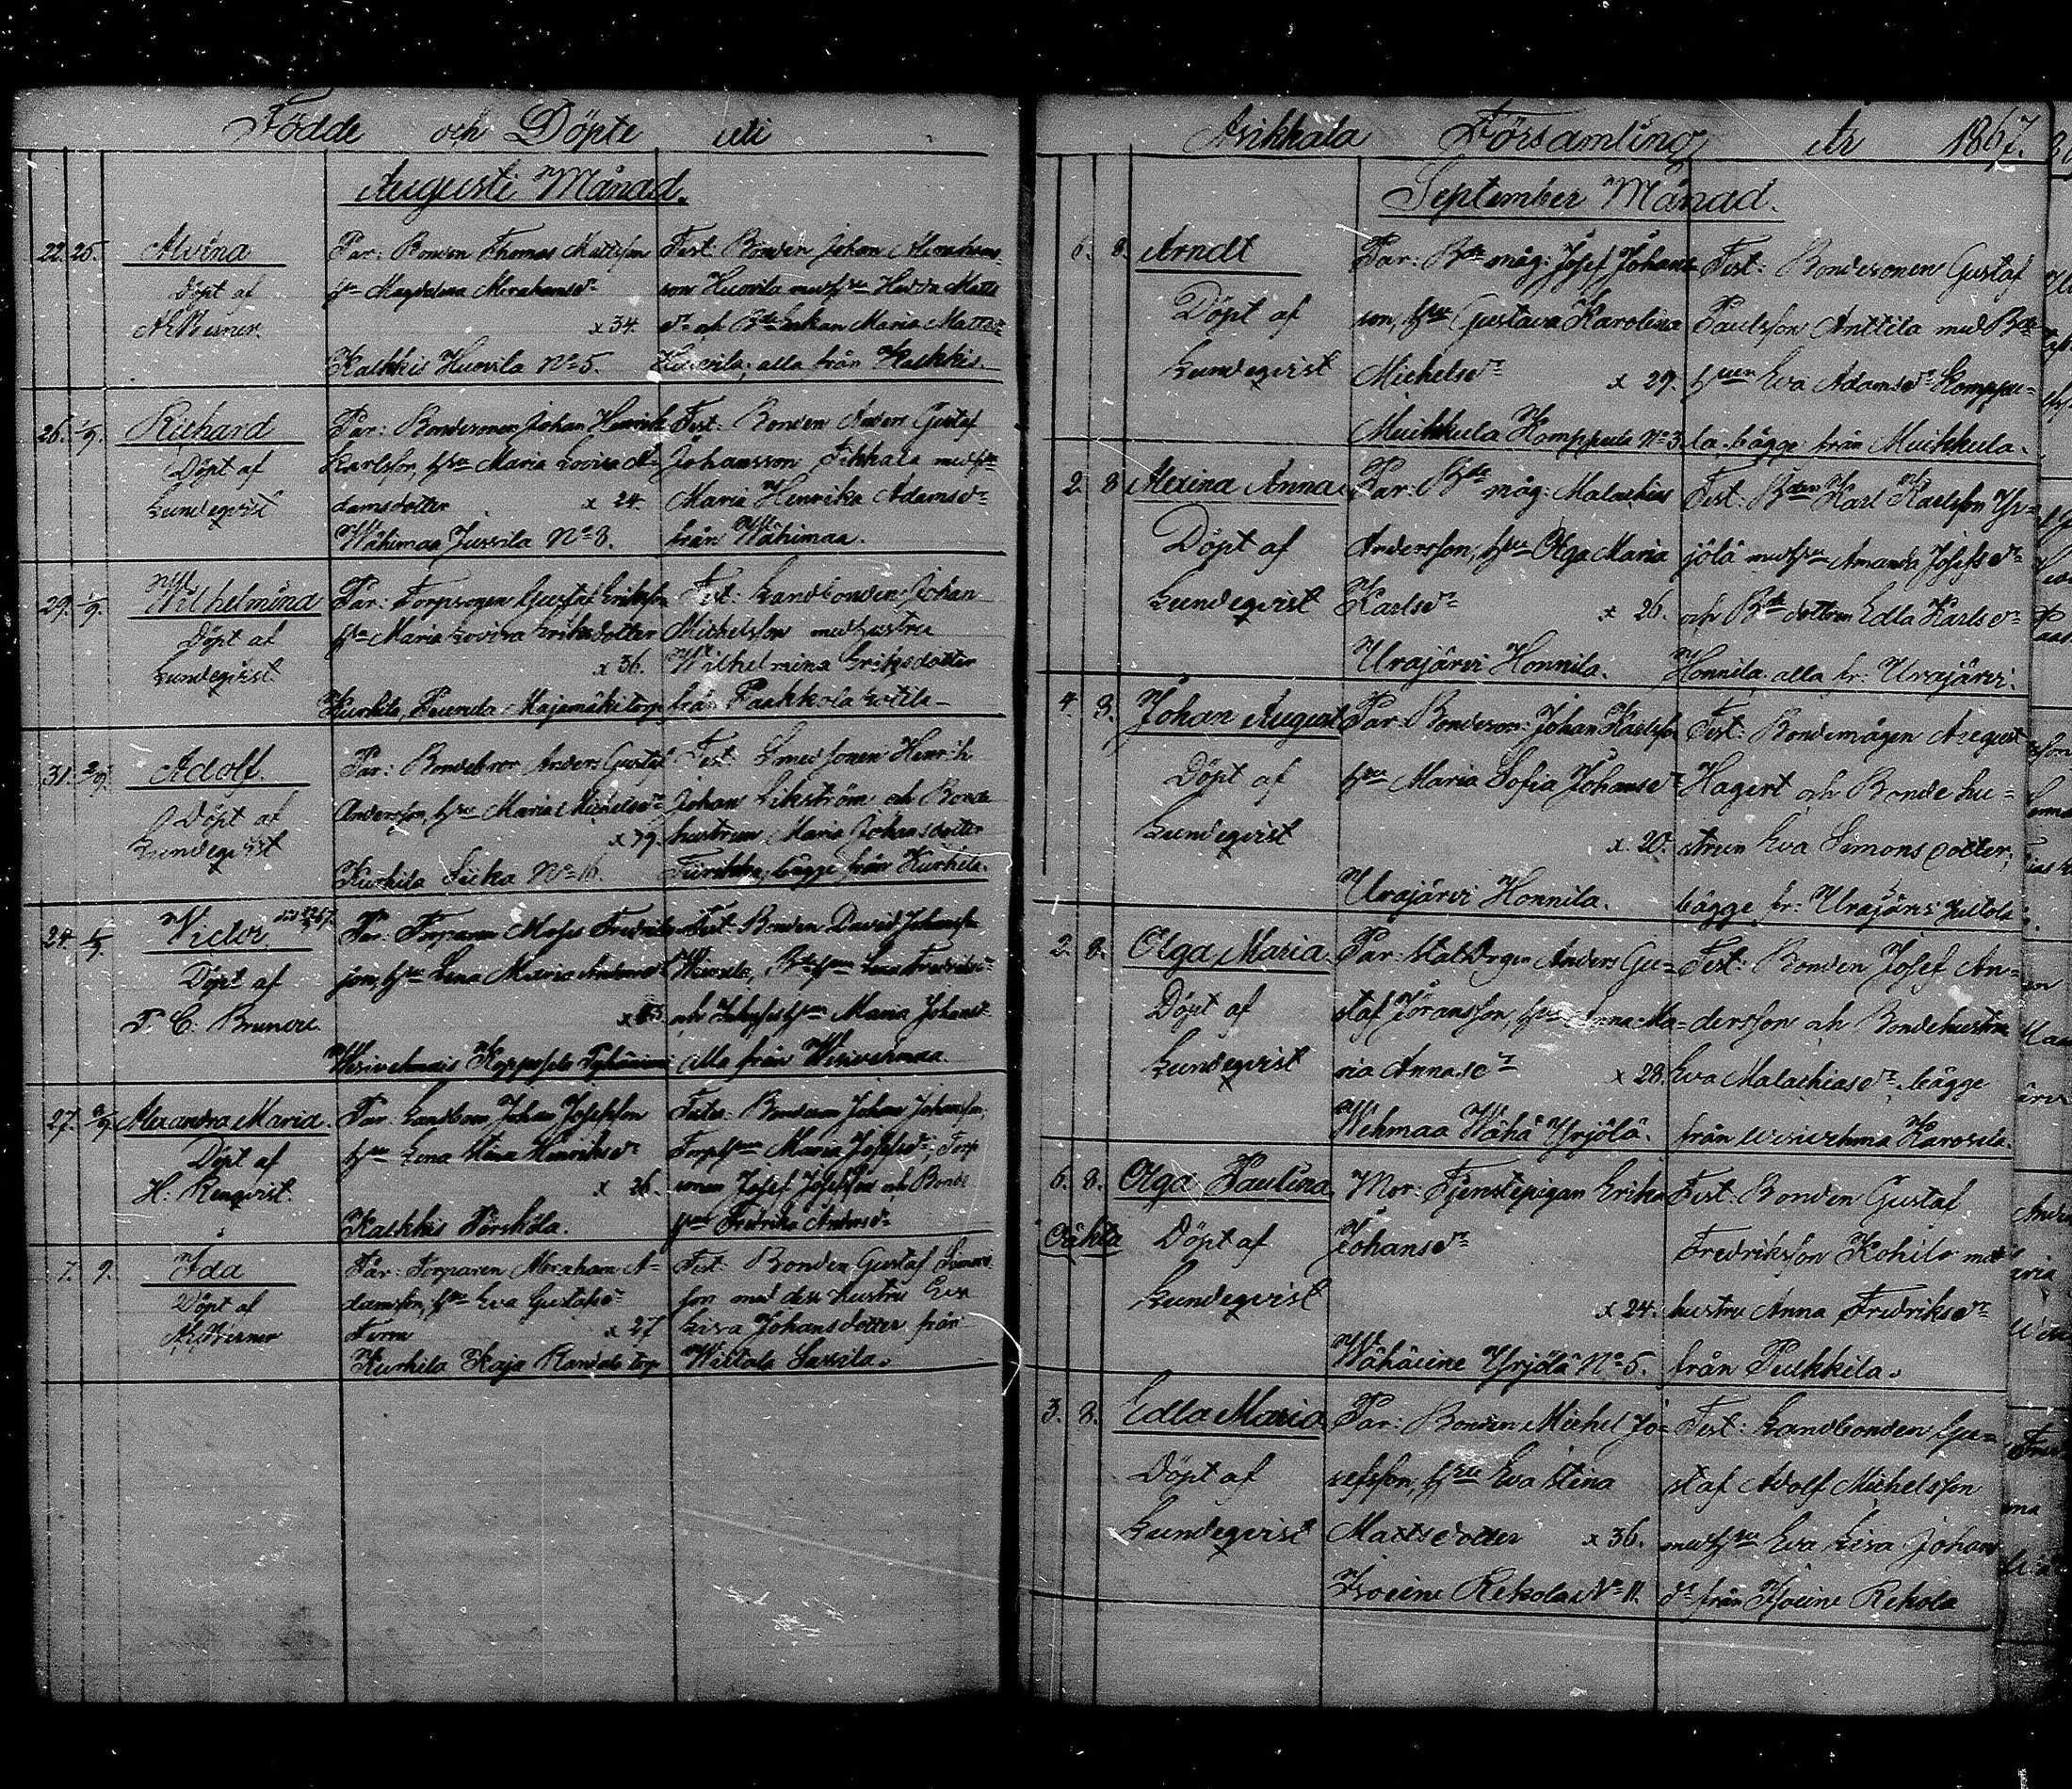 Födde och Döpte uti
Augusti Månad.
22. 25. Alvina
Döpt af
Far: Bonden Thomas Mattsson
hu Magdalena Abrahamsdr
x 34.
Kalkkis Huovila No 5.
Test: Bonden Johan Abrahams-
son Huovila med hu Hedda Matts
dr och Bde Enkan Maria Mattsdr
Huovila, alla från Kalkkis.
26. 1/9. Richard
Döpt af
Lundeqvist
Far: Bondesonen Johan Henrik
Karlsson, hu Maria Lovisa A-
damsdotter x 24.
Wähimaa Jussila No 8.
Test: Bonden Anders Gustaf
Johansson med hu
Maria Henrika Adamsdr
från Wähimaa.
29. 1/9. Wilhelmina
Döpt af
Lundeqvist
Far: Torpsonen Gustaf Eriksson
hu Maria Lovisa Eriksdotter
x 36.
Kurhila, Majamäki torp
Test: Landbonden Johan
Michelsson med hustru
Wilhelmina Eriksdotter
från Paakkola
31. 2/9. Adolf
Döpt af
Lundeqvist
Far: Bondebror Anders Gustaf
Andersson, hu Maria Michelsdr
x 39.
Kurhila Siika No 16.
Test: Smedsonen Henrik
Johan Likström och Bonde
hustrun Maria Johansdotter
bägge från Kurhila.
24. 1/9. Victor
Döpt af
F. C. Bruncre.
Far: Torparen Moses Fredriks-
son, hu Lena Maria Andersdr
Test: Bonden David Johansson
Maria Johansdr
alla från Wesivehmaa
27. Alexandra Maria.
Döpt af
H: Renqvist.
Far: Landbon Johan Josefsson
hu Lena Stina Henriksdr
x 26.
Kalkkis
Test: Bondeson Johan Johansson,
Torphun Maria Josefsdr, Torp
sonen Josef Josefsson och Bonde
hun Fredrika Andersdr
7. 9. Ida
Döpt af
Far: Torparen Abraham A-
damsson, hu Eva Gustafsdr
x 27
Kurhila Kaja Randala torp
Test: Bonden Gustaf Simons
son med dess hustru Eva
Lisa Johansdotter från
Wiitala Sassila.
Asikkala Församling År 1867.
September Månad.
6. 8. Arndt
Döpt af
Lundeqvist
Far: Bde måg: Josef Johans-
son, hu Gustava Karolina
Michelsdr x 29.
Muikkula Komppula No 3
Test: Bondesonen Gustaf
Paulsson Anttila med Bde
huen Eva Adamsdr Komppu-
la, bägge från Muikkula.
2. 8 Alexina Anna
Döpt af
Lundeqvist
Far: Bde måg: Malachias
Andersson, hu Olga Maria
Karlsdr x 26.
Urajärvi Honnila.
Test: Bden Karl Karlsson Yr-
jölä med hu Amanda Josefsdr
och Bde dottren Edla Karlsdr
Honnila, alla fr: Urajärvi.
4. 8. Johan August
Döpt af
Lundeqvist
Far: Bondeson: Johan Karlsson
hu Maria Sofia Johansdr
x. 20.
Urajärvi Honnila.
Test: Bondemågen August
Hagert och Bondehu-
strun Eva Simonsdotter,
bägge fr: Urajärvi
2. 8. Olga Maria
Döpt af
Lundeqvist
Far: Anders Gu-
staf Jöransson, hu Anna Ma-
ria Annasdr x 28.
Wehmaa Wähä Yrjölä.
Test: Bonden Josef An-
dersson och Bondehustrun
Eva Malachiasdr, bägge
från Wesivehma Karosela.
6. 8. Olga Paulina
Oäkta
Döpt af
Lundeqvist
Mor: Tjenstepigan Erika
Johansdr
x 24.
Wähäeine Yrjölä No 5.
Test: Bonden Gustaf
Fredriksson Kohilo med
hustru Anna Fredriksdr
från Pulkkila.
3. 8. Edla Maria
Döpt af
Lundeqvist
Far: Bonden Michel Jo-
sefsson, hu Eva Stina
Mattsdotter x 36.
Isoeine Rekola No 11.
Test: Landbonden Gu-
staf Adolf Michelsson
med hu Eva Lisa Johans
dr från Isoeine Rekola